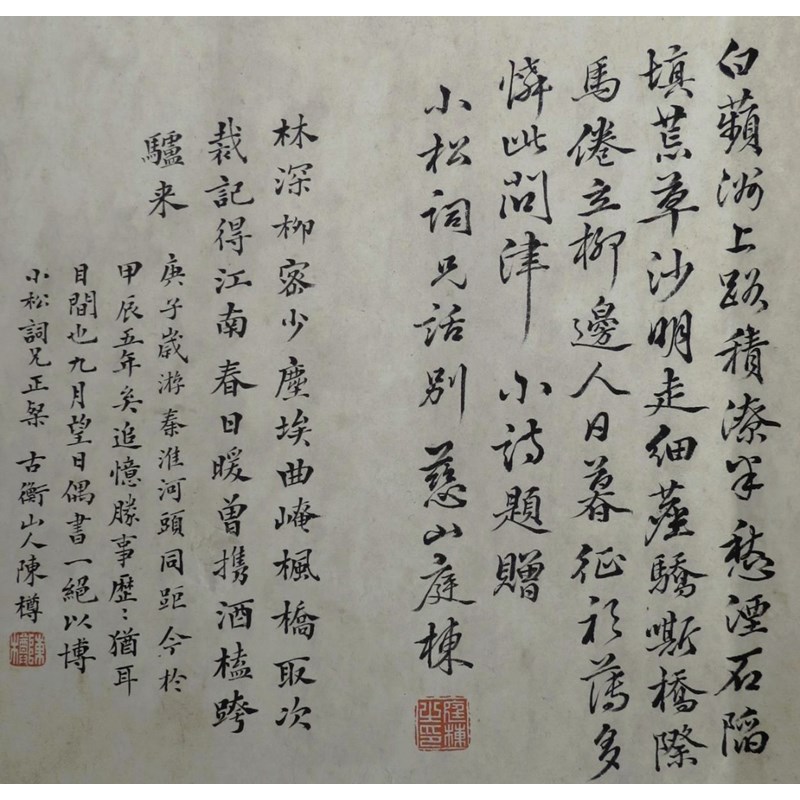 白蘋洲上路積潦半愁湮石陷
填荒草沙明走細塵驕嘶橋際
馬倦立柳邊人日暮征衫薄多
憐此問津 小詩題贈
小松詞兄話別 慈山庭棟
庭棟之印
林深柳密少塵埃曲崦楓橋取次
裁記得江南春日暖曾携酒榼跨
驢来 庚子歲游秦淮河頭同距今於
甲辰五年矣追憶勝事歷〻猶耳
目間也九月望日偶書一絕以博
小松詞兄正粲 古衡山人陳樽
陳樽